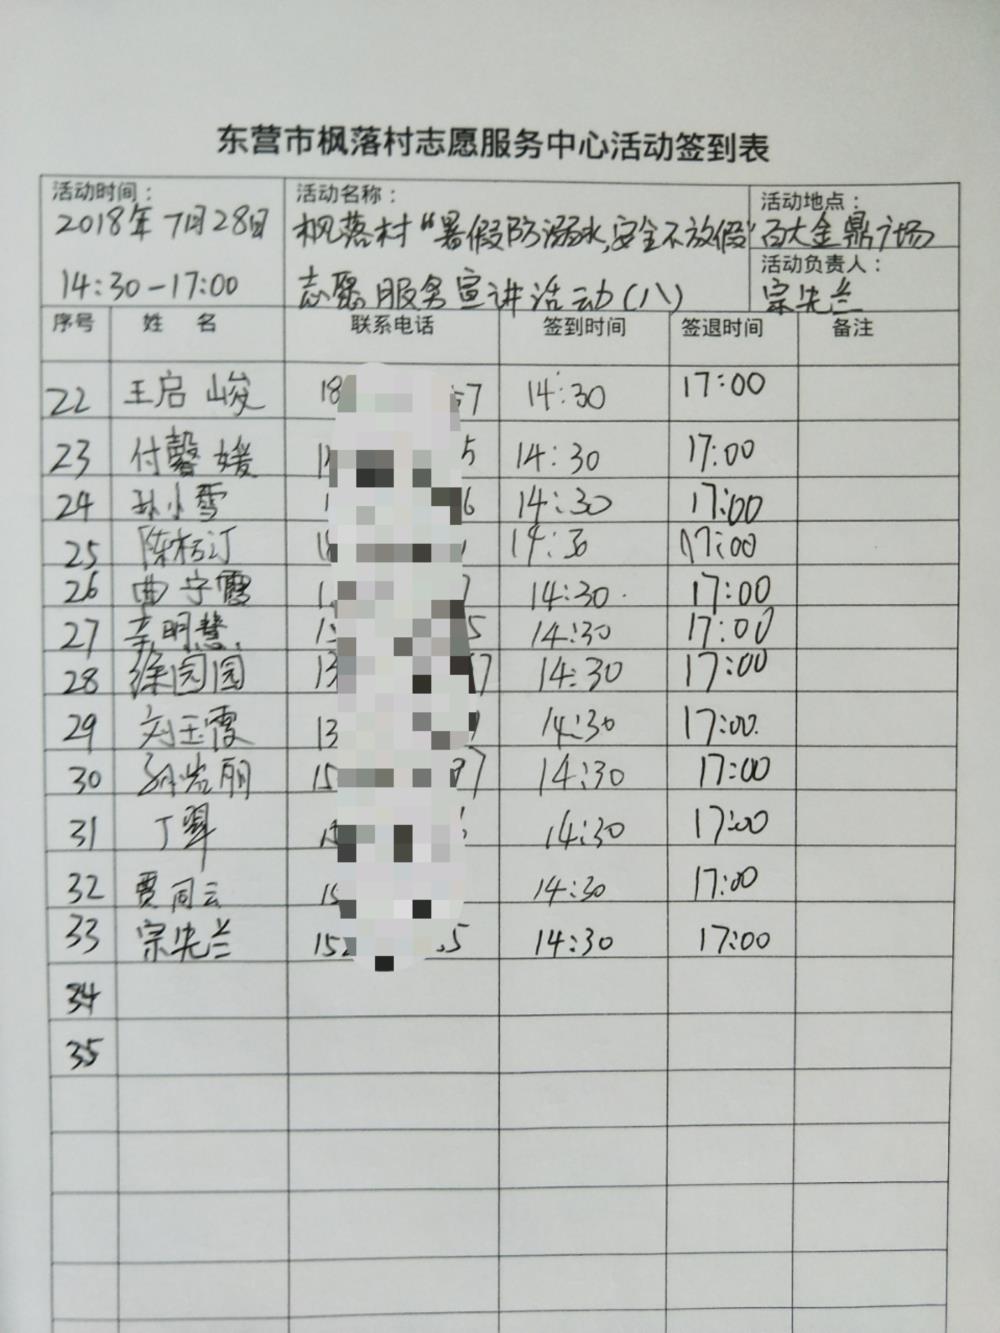 东营市枫落村志愿服务中心活动签到表
活动时间： 活动名称： 活动地点：
2018年7月28日 枫落村“暑假防溺水,安全不放假” 百大金鼎广场
14:30-17:00 志愿服务宣讲活动(八) 活动负责人： 宗先兰
序号 姓 名 联系电话 签到时间 签退时间 备注
22 王启峻 18 57 14:30 17:00
23 付馨媛 5 14:30 17:00
24 孙小雪 1 6 14:30 17:00
25 14:30 17:00
26 曲宁霞 1 7 14:30 17:00
27 辛明慧 15 5 14:30 17:00
28 徐园园 13 7 14:30 17:00
29 刘玉霞 13 14:30 17:00
30 15 97 14:30 17:00
31 丁翠 14:30 17:00
32 贾同云 15 14:30 17:00
33 宗先兰 152 5 14:30 17:00
34
35